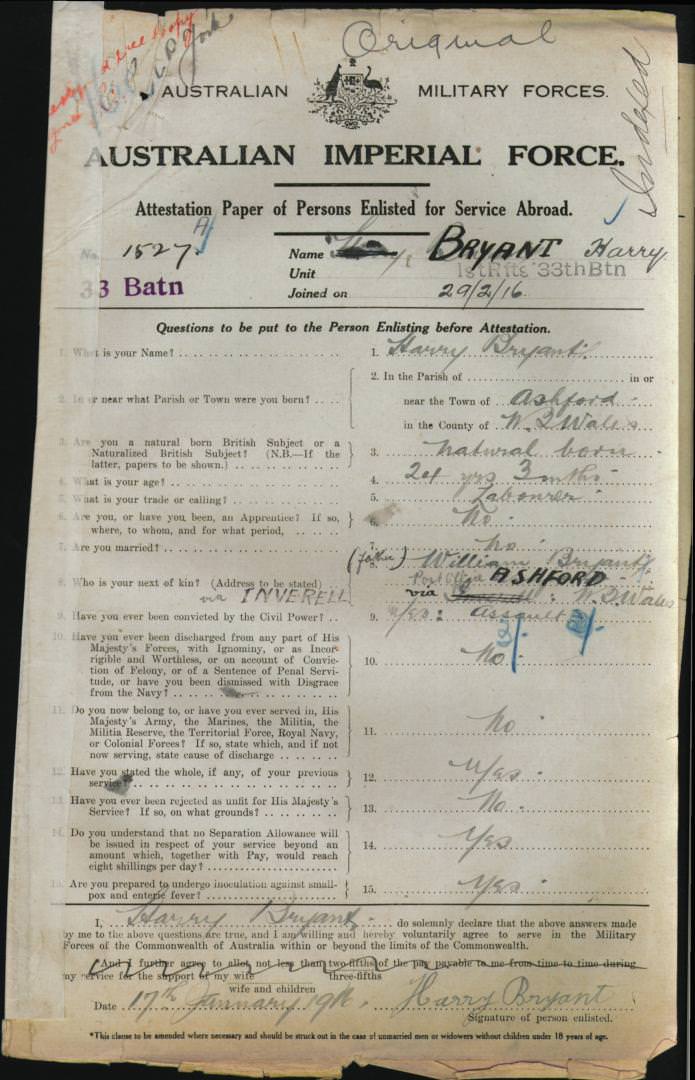 Original
Indexed
AUSTRALIAN MILITARY FORCES.
AUSTRALIAN IMPERIAL FORCE.
Attestation Paper of Persons Enlisted for Service Abroad.
No. 1527 A Name BRYANT Harry
Unit 1st Rfts 33th Btn
33 Batn
Joined on 29/2/16.
Questions to be put to the Person Enlisting before Attestation.
1. What is your Name? 1. Harry Bryant.
2. In or near what Parish or Town were you born? 2. In the Parish of in or
near the Town of Ashford
in the County of N. S Wales
3. Are you a natural born British Subject or a
Naturalized British Subject? (N.B.—If the
latter, papers to be shown.) 3. natural born
4. What is your age? 4. 24 yrs 3 mths
5. What is your trade or calling? 5. Labourer
6. Are you, or have you been, an Apprentice? If so,
where, to whom, and for what period, 6. No
7. Are you married? 7. No
8. Who is your next of kin? (Address to be stated) 8. (father) William Bryant
Post Office ASHFORD
via INVERELL via N S Wales
9. Have you ever been convicted by the Civil Power? 9. Yes: assault
10. Have you ever been discharged from any part of His
Majesty's Forces, with Ignominy, or as Incor-
rigible and Worthless, or on account of Convic-
tion of Felony, or of a Sentence of Penal Servi-
tude, or have you been dismissed with Disgrace
from the Navy? 10. No
11. Do you now belong to, or have you ever served in, His
Majesty's Army, the Marines, the Militia, the
Militia Reserve, the Territorial Force, Royal Navy,
or Colonial Forces? If so, state which, and if not
now serving, state cause of discharge 11. No
12. Have you stated the whole, if any, of your previous
service? 12. Yes
13. Have you ever been rejected as unfit for His Majesty's
Service? If so, on what grounds? 13. No
14. Do you understand that no Separation Allowance will
be issued in respect of your service beyond an
amount which, together with Pay, would reach
eight shillings per day? 14. Yes
15. Are you prepared to undergo inoculation against small-
pox and enteric fever? 15. Yes
I, Harry Bryant do solemnly declare that the above answers made
by me to the above questions are true, and I am willing and hereby voluntarily agree to serve in the Military
Forces of the Commonwealth of Australia within or beyond the limits of the Commonwealth.
*And I further agree to allot not less than two-fifths of the pay payable to me from time to time during
my service for the support of my wife three-fifths
wife and children
Date 17th January 1916. Harry Bryant
Signature of person enlisted.
*This clause to be amended where necessary and should be struck out in the case of unmarried men or widowers without children under 18 years of age.